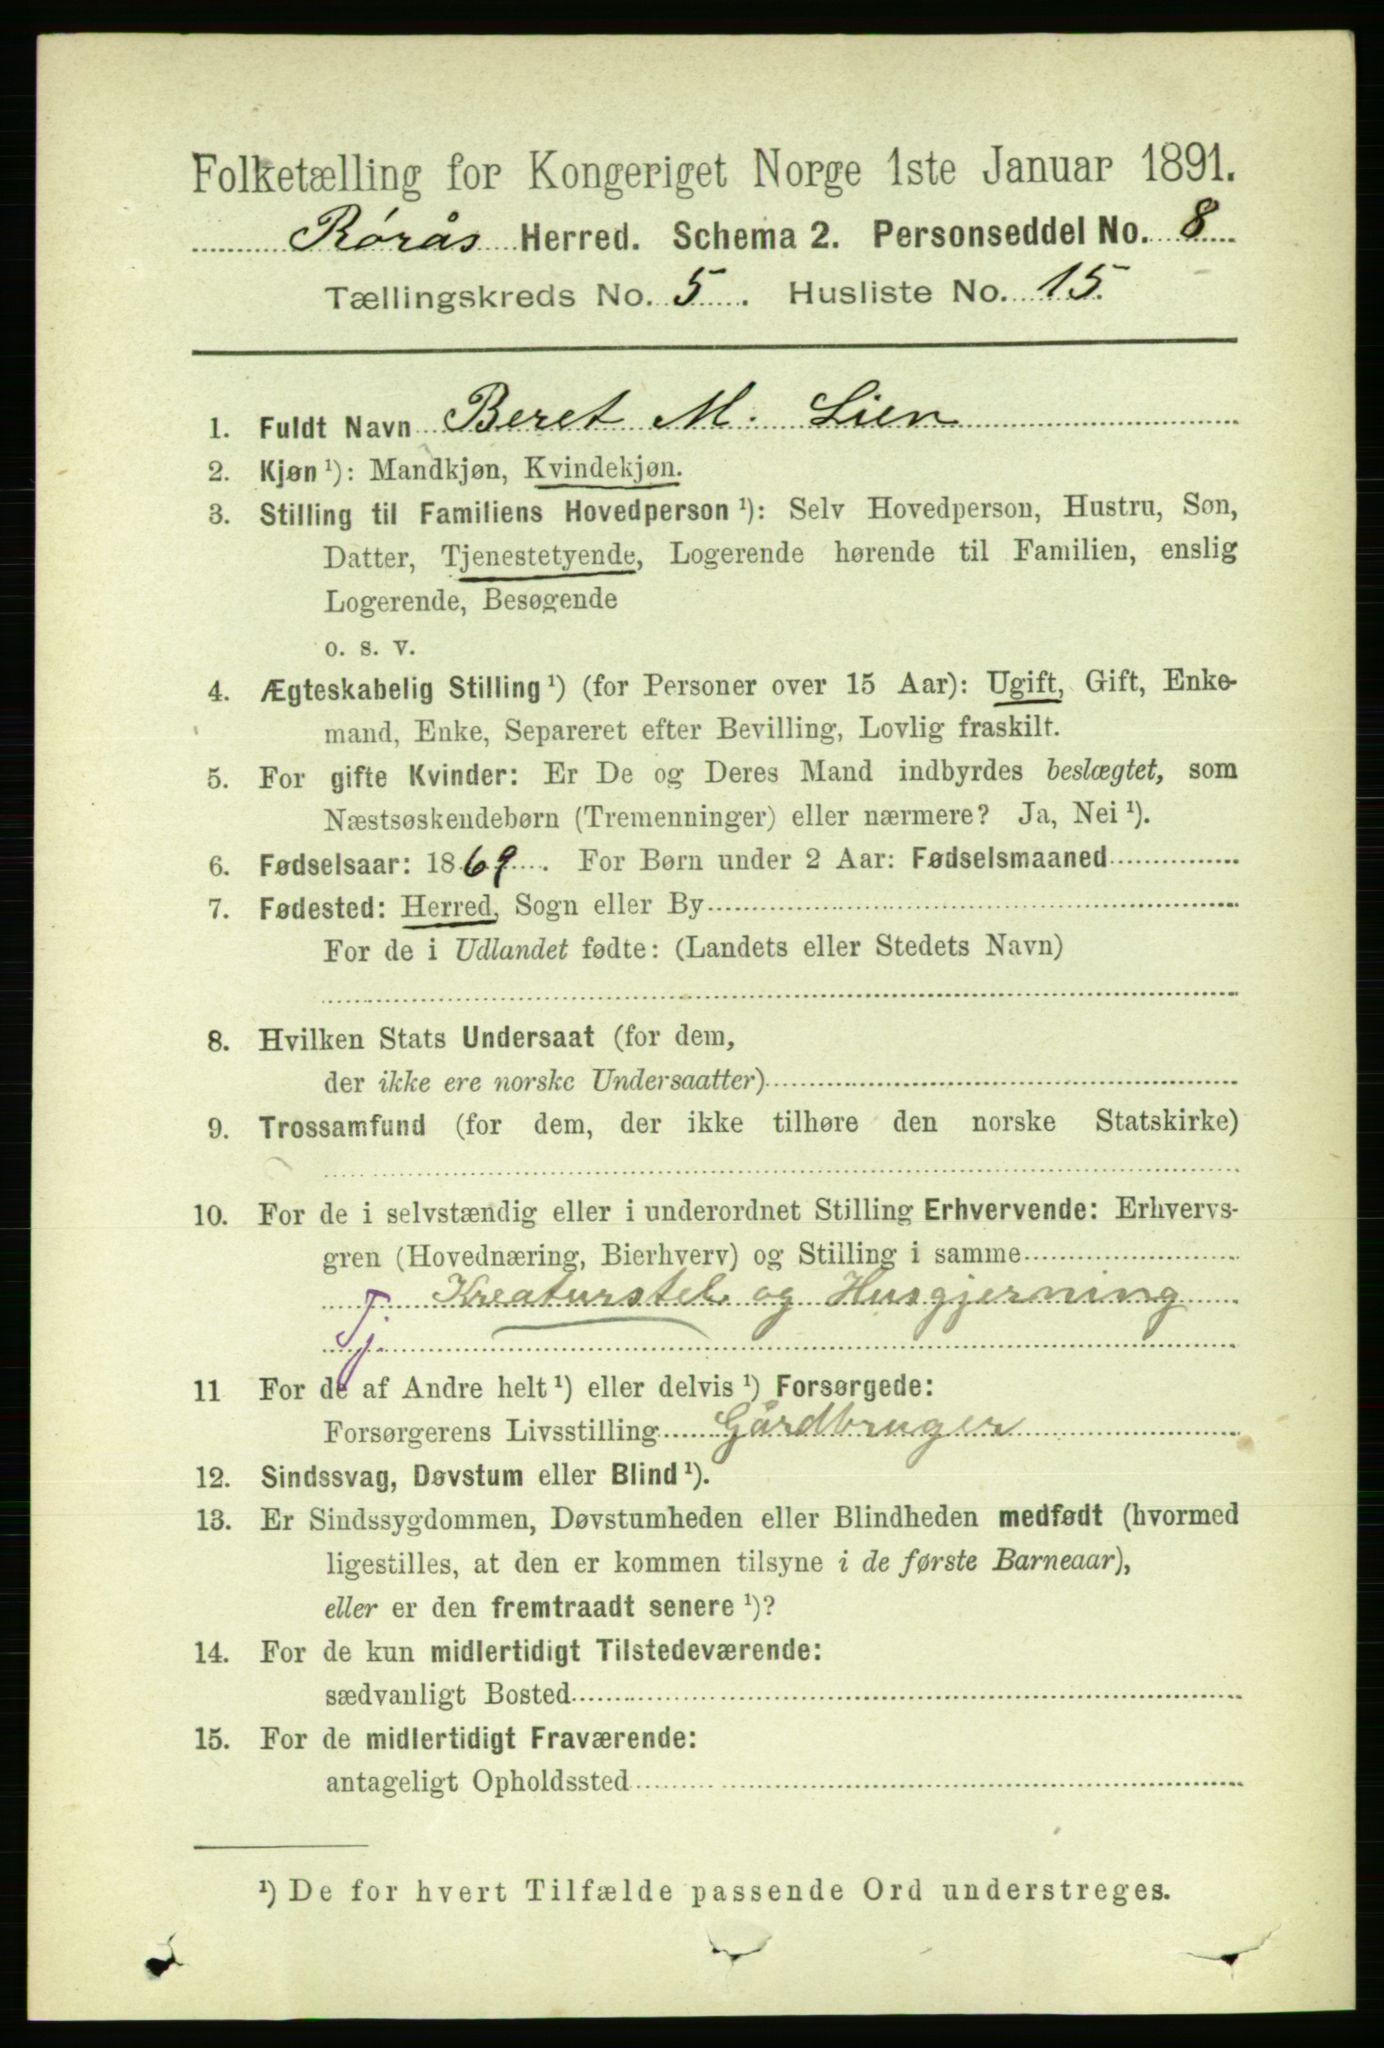 Folketælling for Kongeriget Norge 1ste Januar 1891.
Rørås Herred. Schema 2. Personseddel No. 8
Tællingskreds No. 5. Husliste No. 15.
1. Fuldt Navn Beret M. Lien
2. Kjøn ¹): Mandkjøn, Kvindekjøn.
3. Stilling til Familiens Hovedperson ¹): Selv Hovedperson, Hustru, Søn,
Datter, Tjenestetyende, Logerende hørende til Familien, enslig
Logerende, Besøgende
o. s. v.
4. Ægteskabelig Stilling ¹) (for Personer over 15 Aar): Ugift, Gift, Enke-
mand, Enke, Separeret efter Bevilling, Lovlig fraskilt.
5. For gifte Kvinder: Er De og Deres Mand indbyrdes beslægtet, som
Næstsøskendebørn (Tremenninger) eller nærmere? Ja, Nei ¹).
6. Fødselsaar: 1869. For Børn under 2 Aar: Fødselsmaaned
7. Fødested: Herred, Sogn eller By
For de i Udlandet fødte: (Landets eller Stedets Navn)
8. Hvilken Stats Undersaat (for dem,
der ikke ere norske Undersaatter)
9. Trossamfund (for dem, der ikke tilhøre den norske Statskirke)
10. For de i selvstændig eller i underordnet Stilling Erhvervende: Erhvervs-
gren (Hovednæring, Bierhverv) og Stilling i samme
Kreaturstel og Husgjerning
11 For de af Andre helt ¹) eller delvis ¹) Forsørgede:
Forsørgerens Livsstilling Gårdbruger
12. Sindssvag, Døvstum eller Blind ¹).
13. Er Sindssygdommen, Døvstumheden eller Blindheden medfødt (hvormed
ligestilles, at den er kommen tilsyne i de første Barneaar),
eller er den fremtraadt senere ¹)?
14. For de kun midlertidigt Tilstedeværende:
sædvanligt Bosted
15. For de midlertidigt Fraværende:
antageligt Opholdssted
¹) De for hvert Tilfælde passende Ord understreges.